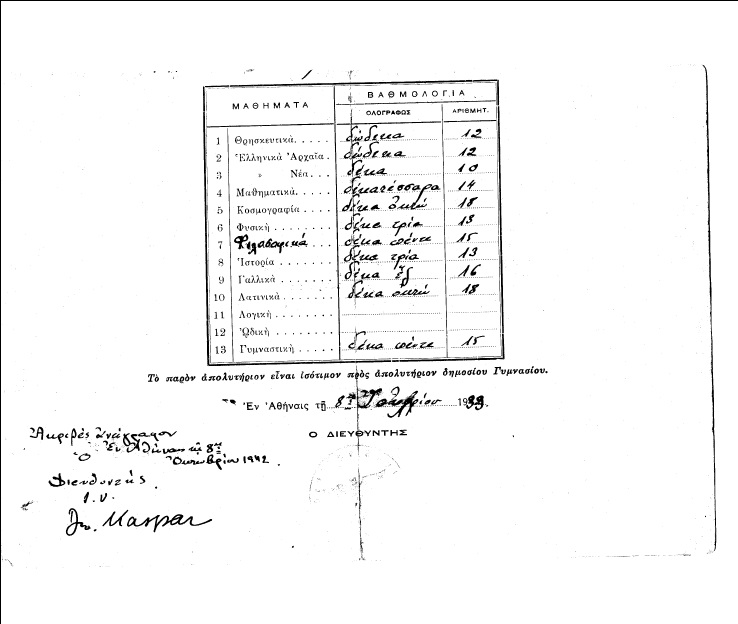 ΜΑΘΗΜΑΤΑ ΒΑΘΜΟΛΟΓΙΑ
ΟΛΟΓΡΑΦΩΣ ΑΡΙΘΜΗΤ.
1 Θρησκευτικά..... δώδεκα 12
2 Ἑλληνικὰ Ἀρχαῖα. δώδεκα 12
3 » Νέα... δέκα 10
4 Μαθηματικά..... δεκατέσσαρα 14
5 Κοσμογραφία.... δέκα ὀκτώ 18
6 Φυσικὴ....... δέκα τρία 13
7 Φιλοσοφικά... δέκα πέντε 15
8 Ἱστορία....... δέκα τρία 13
9 Γαλλικὰ....... δέκα ἕξ 16
10 Λατινικὰ....... δέκα ὀκτώ 18
11 Λογικὴ........
12 Ὠδικὴ........
13 Γυμναστικὴ..... δέκα πέντε 15
Τὸ παρὸν ἀπολυτήριον εἶναι ἰσότιμον πρὸς ἀπολυτήριον δημοσίου Γυμνασίου.
Ἐν Ἀθήναις τῇ 8ῃ 19
Ο ΔΙΕΥΘΥΝΤΗΣ
Ἀκριβὲς ἀντίγραφον
Ἐν Ἀθήναις τῇ 8ῃ
Ὁ Ὀκτωβρίου 1942
Διευθυντής